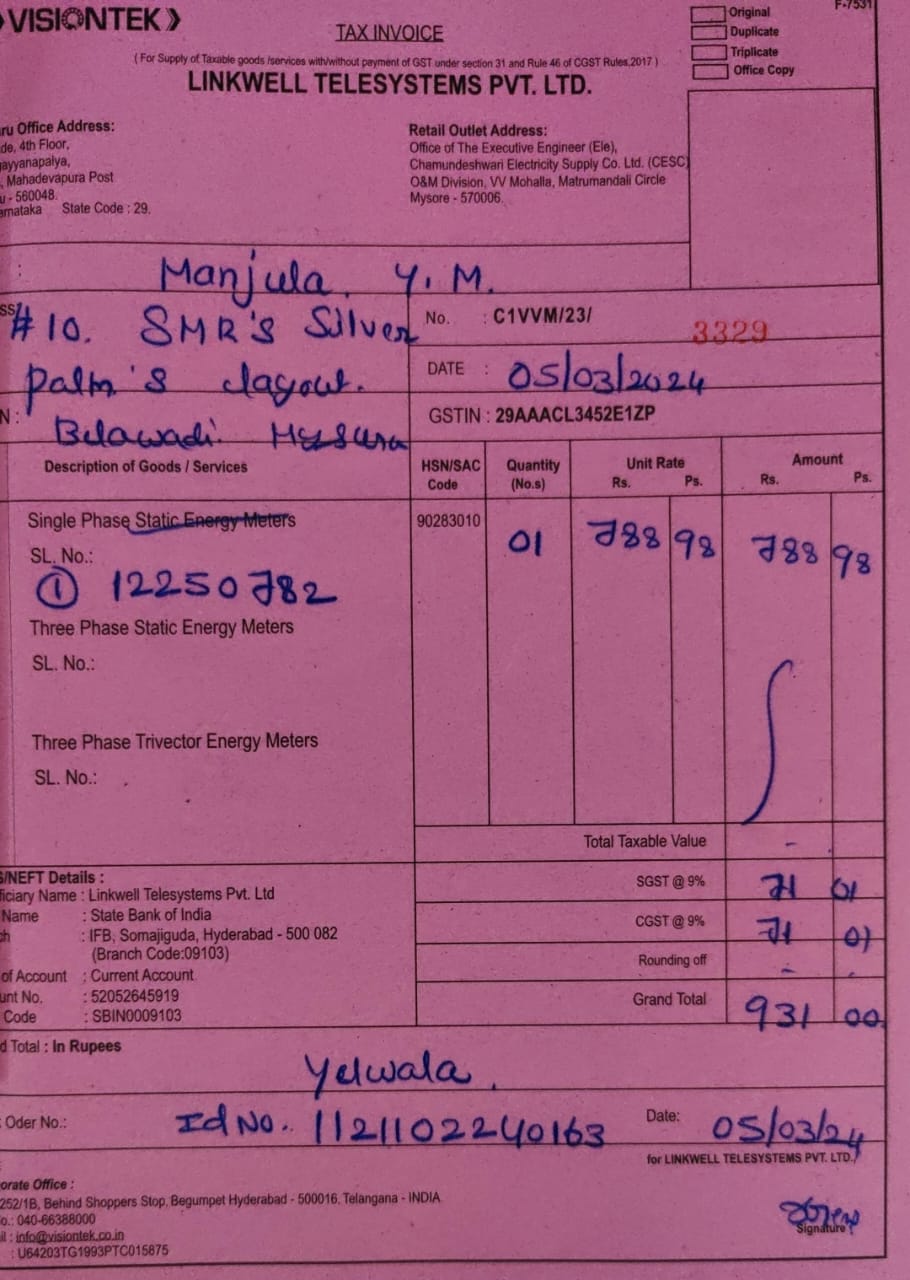 VISIONTEK
F-7531
TAX INVOICE
Original
Duplicate
Triplicate
Office Copy
( For Supply of Taxable goods /services with/without payment of GST under section 31 and Rule 46 of CGST Rules,2017 )
LINKWELL TELESYSTEMS PVT. LTD.
ru Office Address:
de, 4th Floor,
ayyanapalya,
, Mahadevapura Post
u - 560048.
rnataka State Code : 29.
Retail Outlet Address:
Office of The Executive Engineer (Ele),
Chamundeshwari Electricity Supply Co. Ltd. (CESC)
O&M Division, VV Mohalla, Matrumandali Circle
Mysore - 570006.
: Manjula. Y.M.
ss #10. SMR's Silver
palm's layout.
N : Belawadi.
No. : C1VVM/23/ 3329
DATE : 05/03/2024
GSTIN : 29AAACL3452E1ZP
Description of Goods / Services HSN/SAC Code Quantity (No.s) Unit Rate Rs. Ps. Amount Rs. Ps.
Single Phase Static Energy Meters 90283010 01 788 98 788 98
SL. No.:
① 12250782
Three Phase Static Energy Meters
SL. No.:
Three Phase Trivector Energy Meters
SL. No.:
Total Taxable Value -
SGST @ 9% 71 01
CGST @ 9% 71 01
Rounding off -
Grand Total 931 00
S/NEFT Details :
ficiary Name : Linkwell Telesystems Pvt. Ltd
Name : State Bank of India
ch : IFB, Somajiguda, Hyderabad - 500 082
(Branch Code:09103)
of Account : Current Account
unt No. : 52052645919
Code : SBIN0009103
d Total : In Rupees
Yelwala.
Oder No.: Id No. 1121102240163 Date: 05/03/24
for LINKWELL TELESYSTEMS PVT. LTD.,
orate Office :
252/1B, Behind Shoppers Stop, Begumpet Hyderabad - 500016. Telangana - INDIA
o.: 040-66388000
il : info@visiontek.co.in
: U64203TG1993PTC015875
Signature